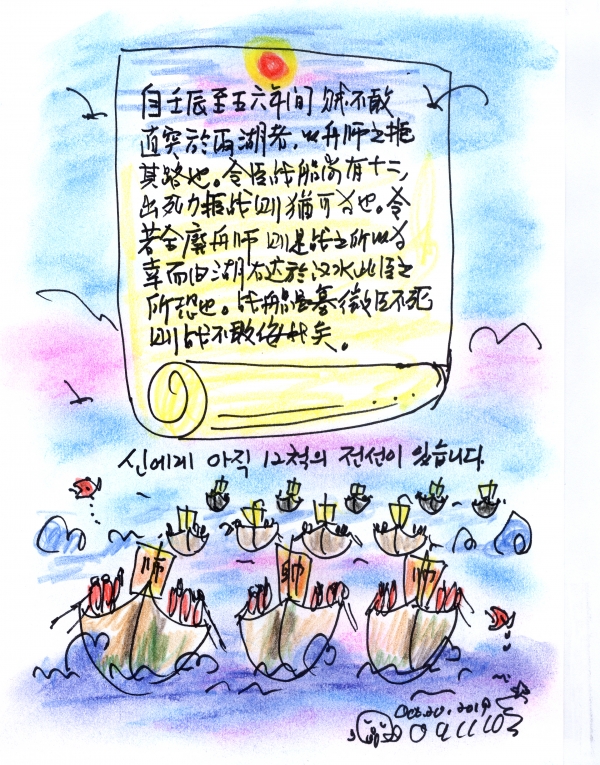 自壬辰至五六年间 贼不敢
直突於两湖者，以舟师之扼
其路也。今臣战船尚有十二,
出死力拒战则猶可为也。今
若全廢舟师 则是战之所以为
幸而由湖右达於汉水此臣之
所恐也。战船虽寡微臣不死
则战不敢侮我矣。
신에게 아직 12척의 전선이 있습니다.
帥 帥 帅
Oct.20.2019